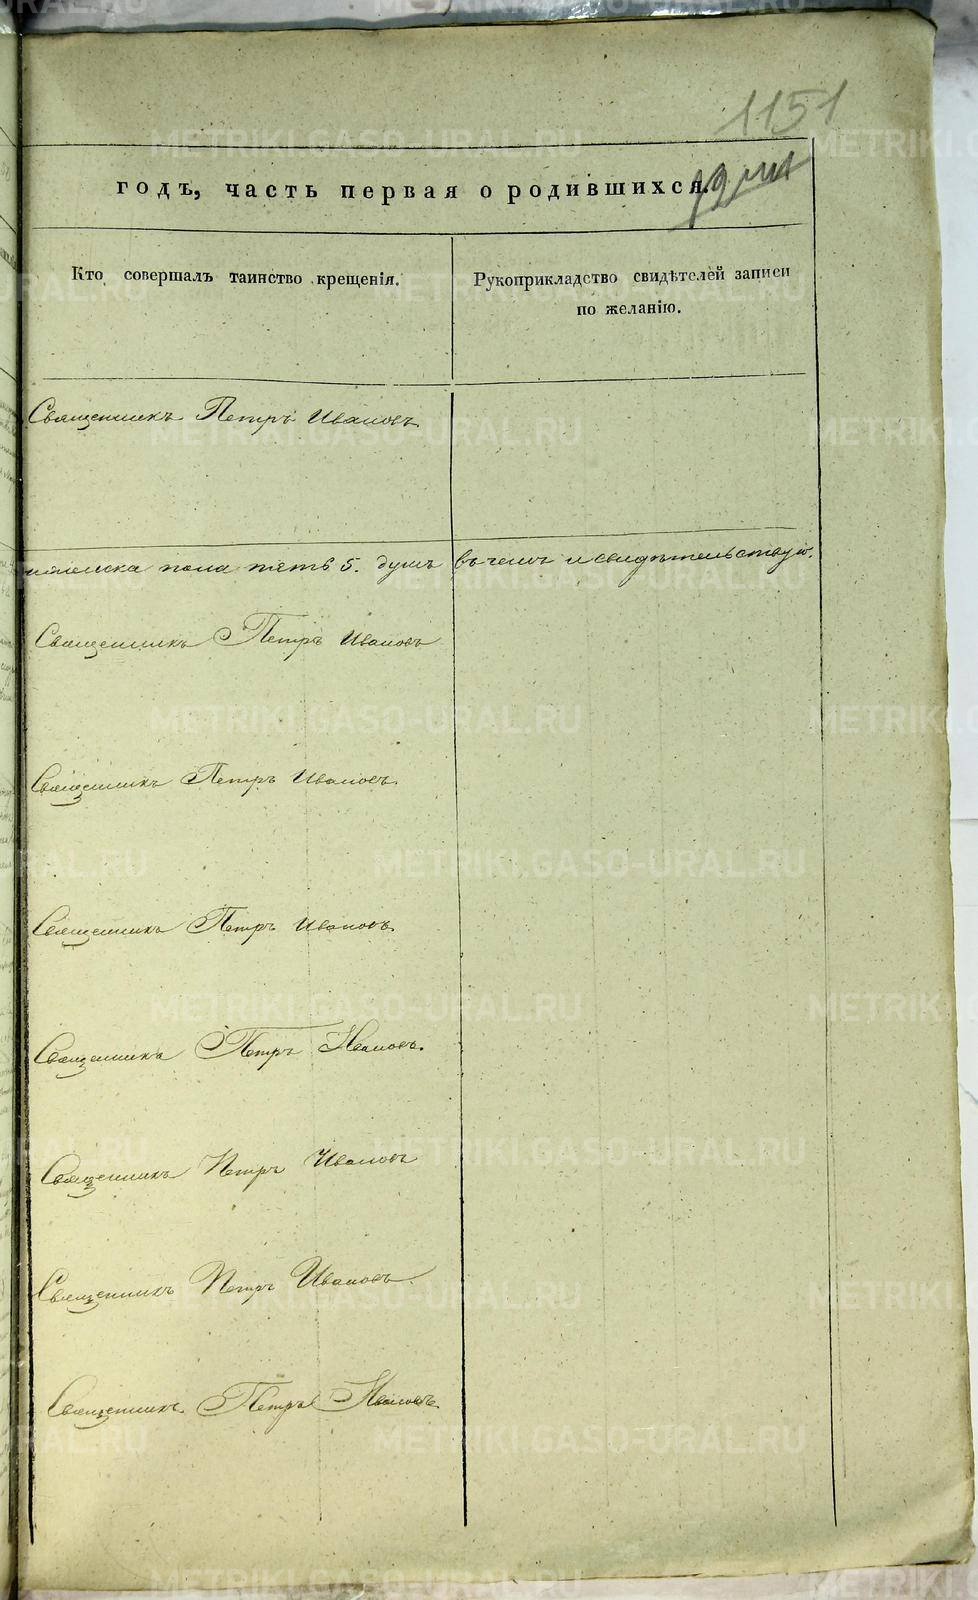 1151
годъ, часть первая о родившихся.
Кто совершалъ таинство крещенія.
Рукоприкладство свидѣтелей записи
по желанію.
Священникъ Петръ Ивановъ
пола пять 5. душъ въ чемъ и свидѣтельствую.
Священникъ Петръ Ивановъ
Священникъ Петръ Ивановъ.
Священникъ Петръ Ивановъ.
Священникъ Петръ Ивановъ.
Священникъ Петръ Ивановъ
Священникъ Петръ Ивановъ.
Священникъ Петръ Ивановъ.
METRIKI.GASO-URAL.RU